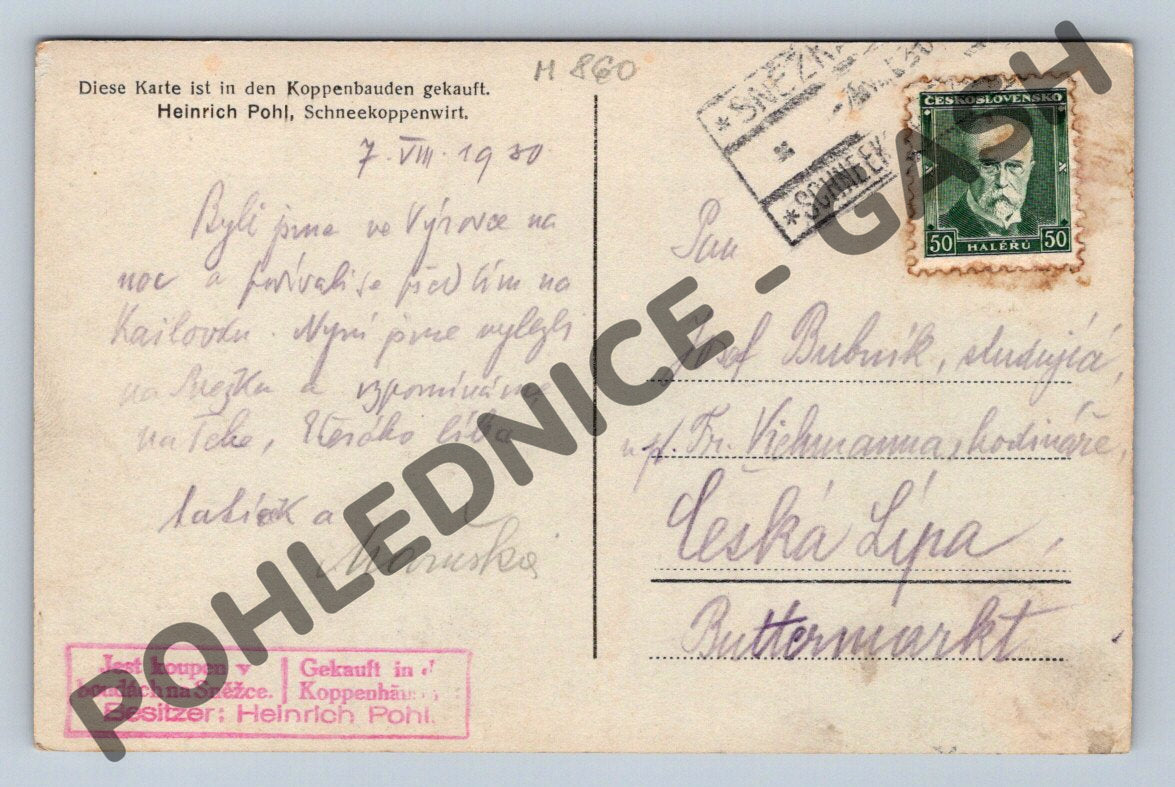 Diese Karte ist in den Koppenbauden gekauft.
Heinrich Pohl, Schneekoppenwirt.
M 860
7. VIII. 1930
Byli jsme ve Výrovce na
noc a podívali se před tím na
Nyní jsme vylezli
na Sněžku a vzpomínáme
na Tebe,
tatíček a
Maruška
*SNĚŽK
*SCHNEEK
ČESKOSLOVENSKO
50 HALÉŘŮ 50
Pan
Josef Bubník, studující,
Fr. Vichmanna, hodináře,
Česká Lípa,
Buttermarkt
Jest koupen v
boudách na Sněžce.
Gekauft in d
Koppenhäu
Besitzer: Heinrich Pohl.
POHLEDNICE - GASH